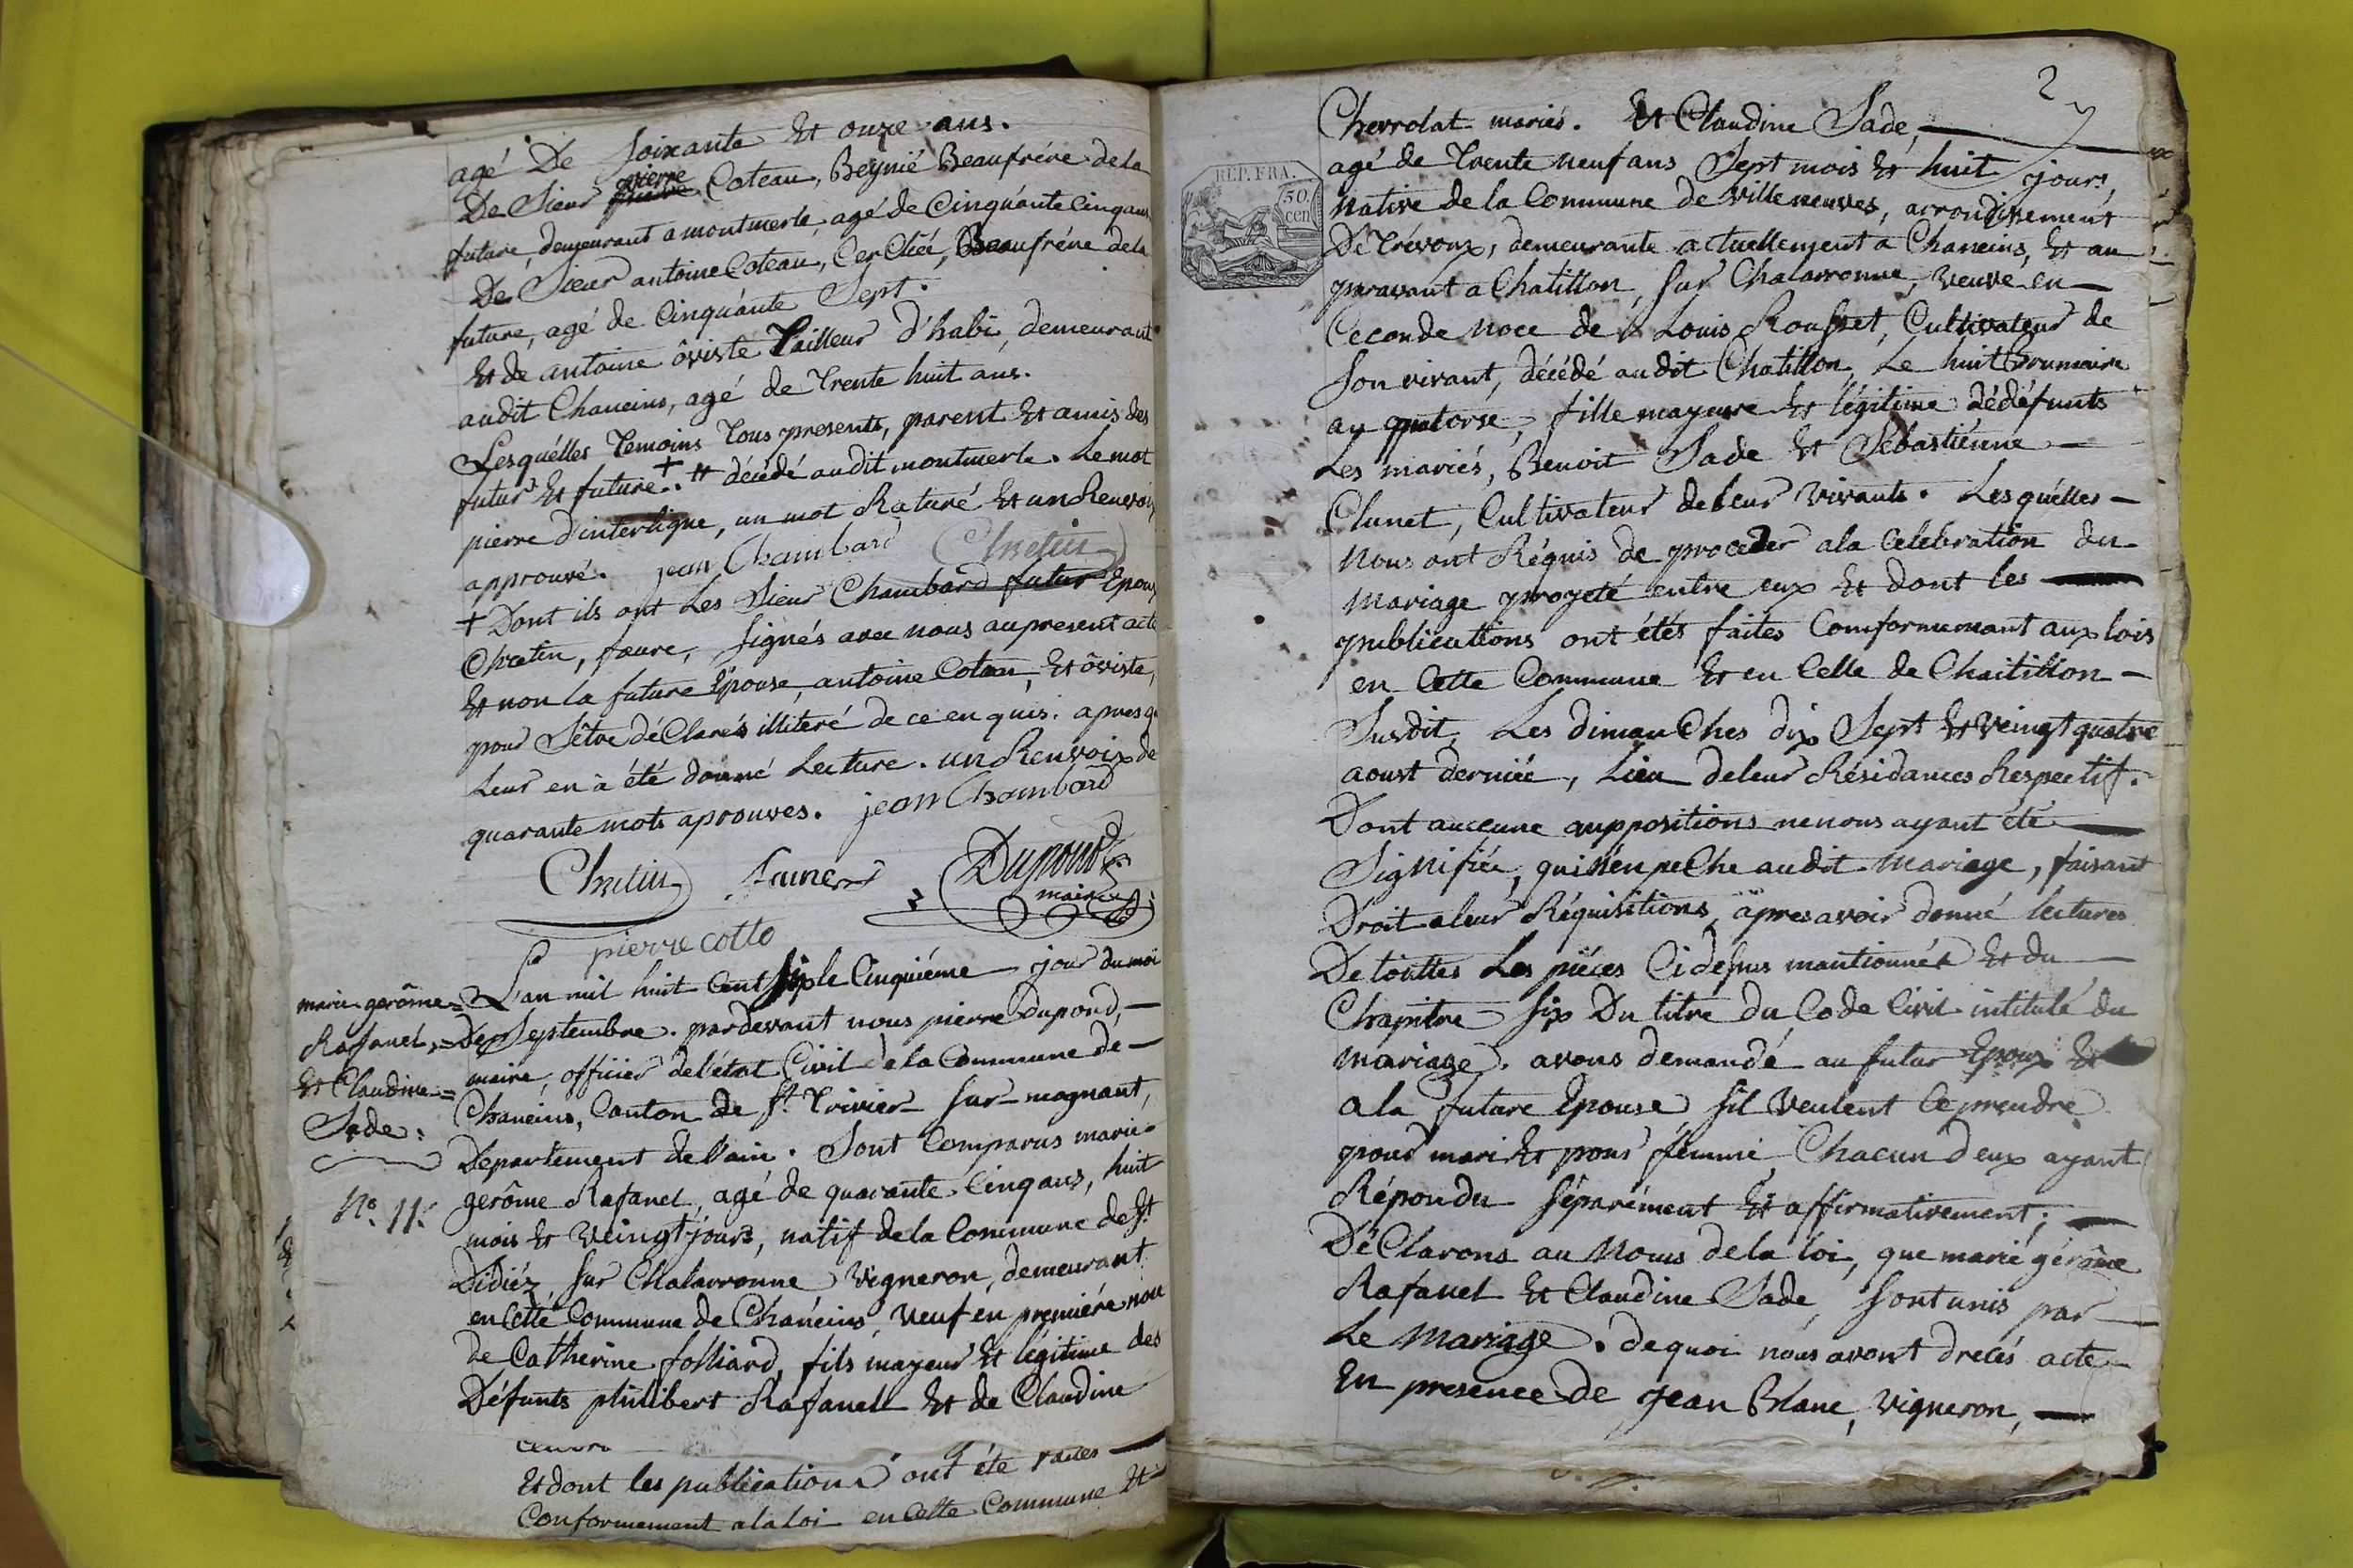 agé De Soixante Et onze ans.
De Sieur pierre Coteau, Beynié Beaufrére dela
future, demeurant a montmerle, agé de Cinquánte Cinq ans
De Sieur antoine Coteau, Cercliée, Beaufrére dela
future, agé de Cinquánte Sept.
Et de antoine ôviste Tailleur d'habi, demeurant
audit Chaneins, agé de Trente huit ans.
Lesquélles Temoins Tous presents, parent Et amis des
futur Et future +. # décédé audit montmerle. Le mot
pierre D'interligne, un mot Raturé Et un Renvoi
approuvé. jean Chambard Chretin
+ Dont ils ont Les Sieur Chambard futur Epoux
Chretin, faure, Signés avec nous au present acte
Et non la future Epouse, antoine Coteau, Et ôviste,
pour S'être déClarés illiteré de ce en quis. apres q
Leur en à été donné Lecture. un Renvois de
quarante mots aprouves. jean Chambard
Chretin faure Dupond
maire
pierre cotto
marie gerôme =
Rafanel, =
Et Claudine =
Sade:
N.° 11.
L'an mil huit Cent Six le Cinquiéme jour du moi
De Septembre. pardevant nous pierre Dupond, —
maire, officier de l'état Civil de la Commune de —
Chaneins, Canton de St. Trivier Sur-mognant,
Departement de l'ain. Sont Comparus marie
gerôme Rafanel, agé de quarante Cinq ans, huit
mois Et Veingt jours, natif de la Commune de St.
Didiéz Sur Chalarronne Vigneron, demeurant
en Cette Commune de Chanéins, Veuf en première noce
de Catherine folliard, fils mayeur Et légitime des
Défunts philibert Rafanell Et de Claudine
Et dont les publications ont été faites —
Conformement a la loi en Cette Commune Et
2
REP. FRA.
50.
cen
Chevrolat mariés. Et Claudine Sade, —
agé de Trente neuf ans Sept mois Et huit jours,
Native de la Commune de Villeneuves, arrondissement
De Trévoux, demeurante actuellement á Chaneins, Et au
paravant a Chatillon, Sur Chalarronne, Veuve en —
Ceconde Noce de Louis Rousset, Cultivateur de
Son vivant, décédé audit Chatillon, Le huit Brumaire
an quatorse, fille mayeure Et légitime dédéfunts
Les mariés, Benoit Sade Et Sébastiénne —
Clunet, Cultivateur deleur Vivants. Lesquélles —
Nous ont Réquis de proceder a la Celébration du
Mariage projeté entre eux Et dont les
publications ont étés faites Comformemant aux lois
en Cette Commune Et en Celle de Chaitillon —
Susdit, Les dimanChes dix Sept Et Veingt quatre
aoust derniée, Lieu deleur Résidances Respectif.
Dont auccune auppositions ne nous ayant été —
Signifiée, qui n'enpeChe audit mariage, faisant
Droit aleur Réquisitions, äpres avoir donné lectures
De touttes Les piéces Cidessus mantionnés Et du —
Chapitre Six Du titre du Code Civil intitulé du
mariage. avons demandé au futur Epoux Et
a la future Epouse, Sil Veulent Ce prendre
pour mari Et pour fémme, Chacun d'eux ayant
Répondu Séparément Et affirmativement; —
DéClarons au Noms de la loi, que marie gérôme
Rafanel Et Claudine Sade, Sont unis par —
Le Mariage. de quoi nous avont drecés acte —
En presence de jean Blanc, Vigneron, —